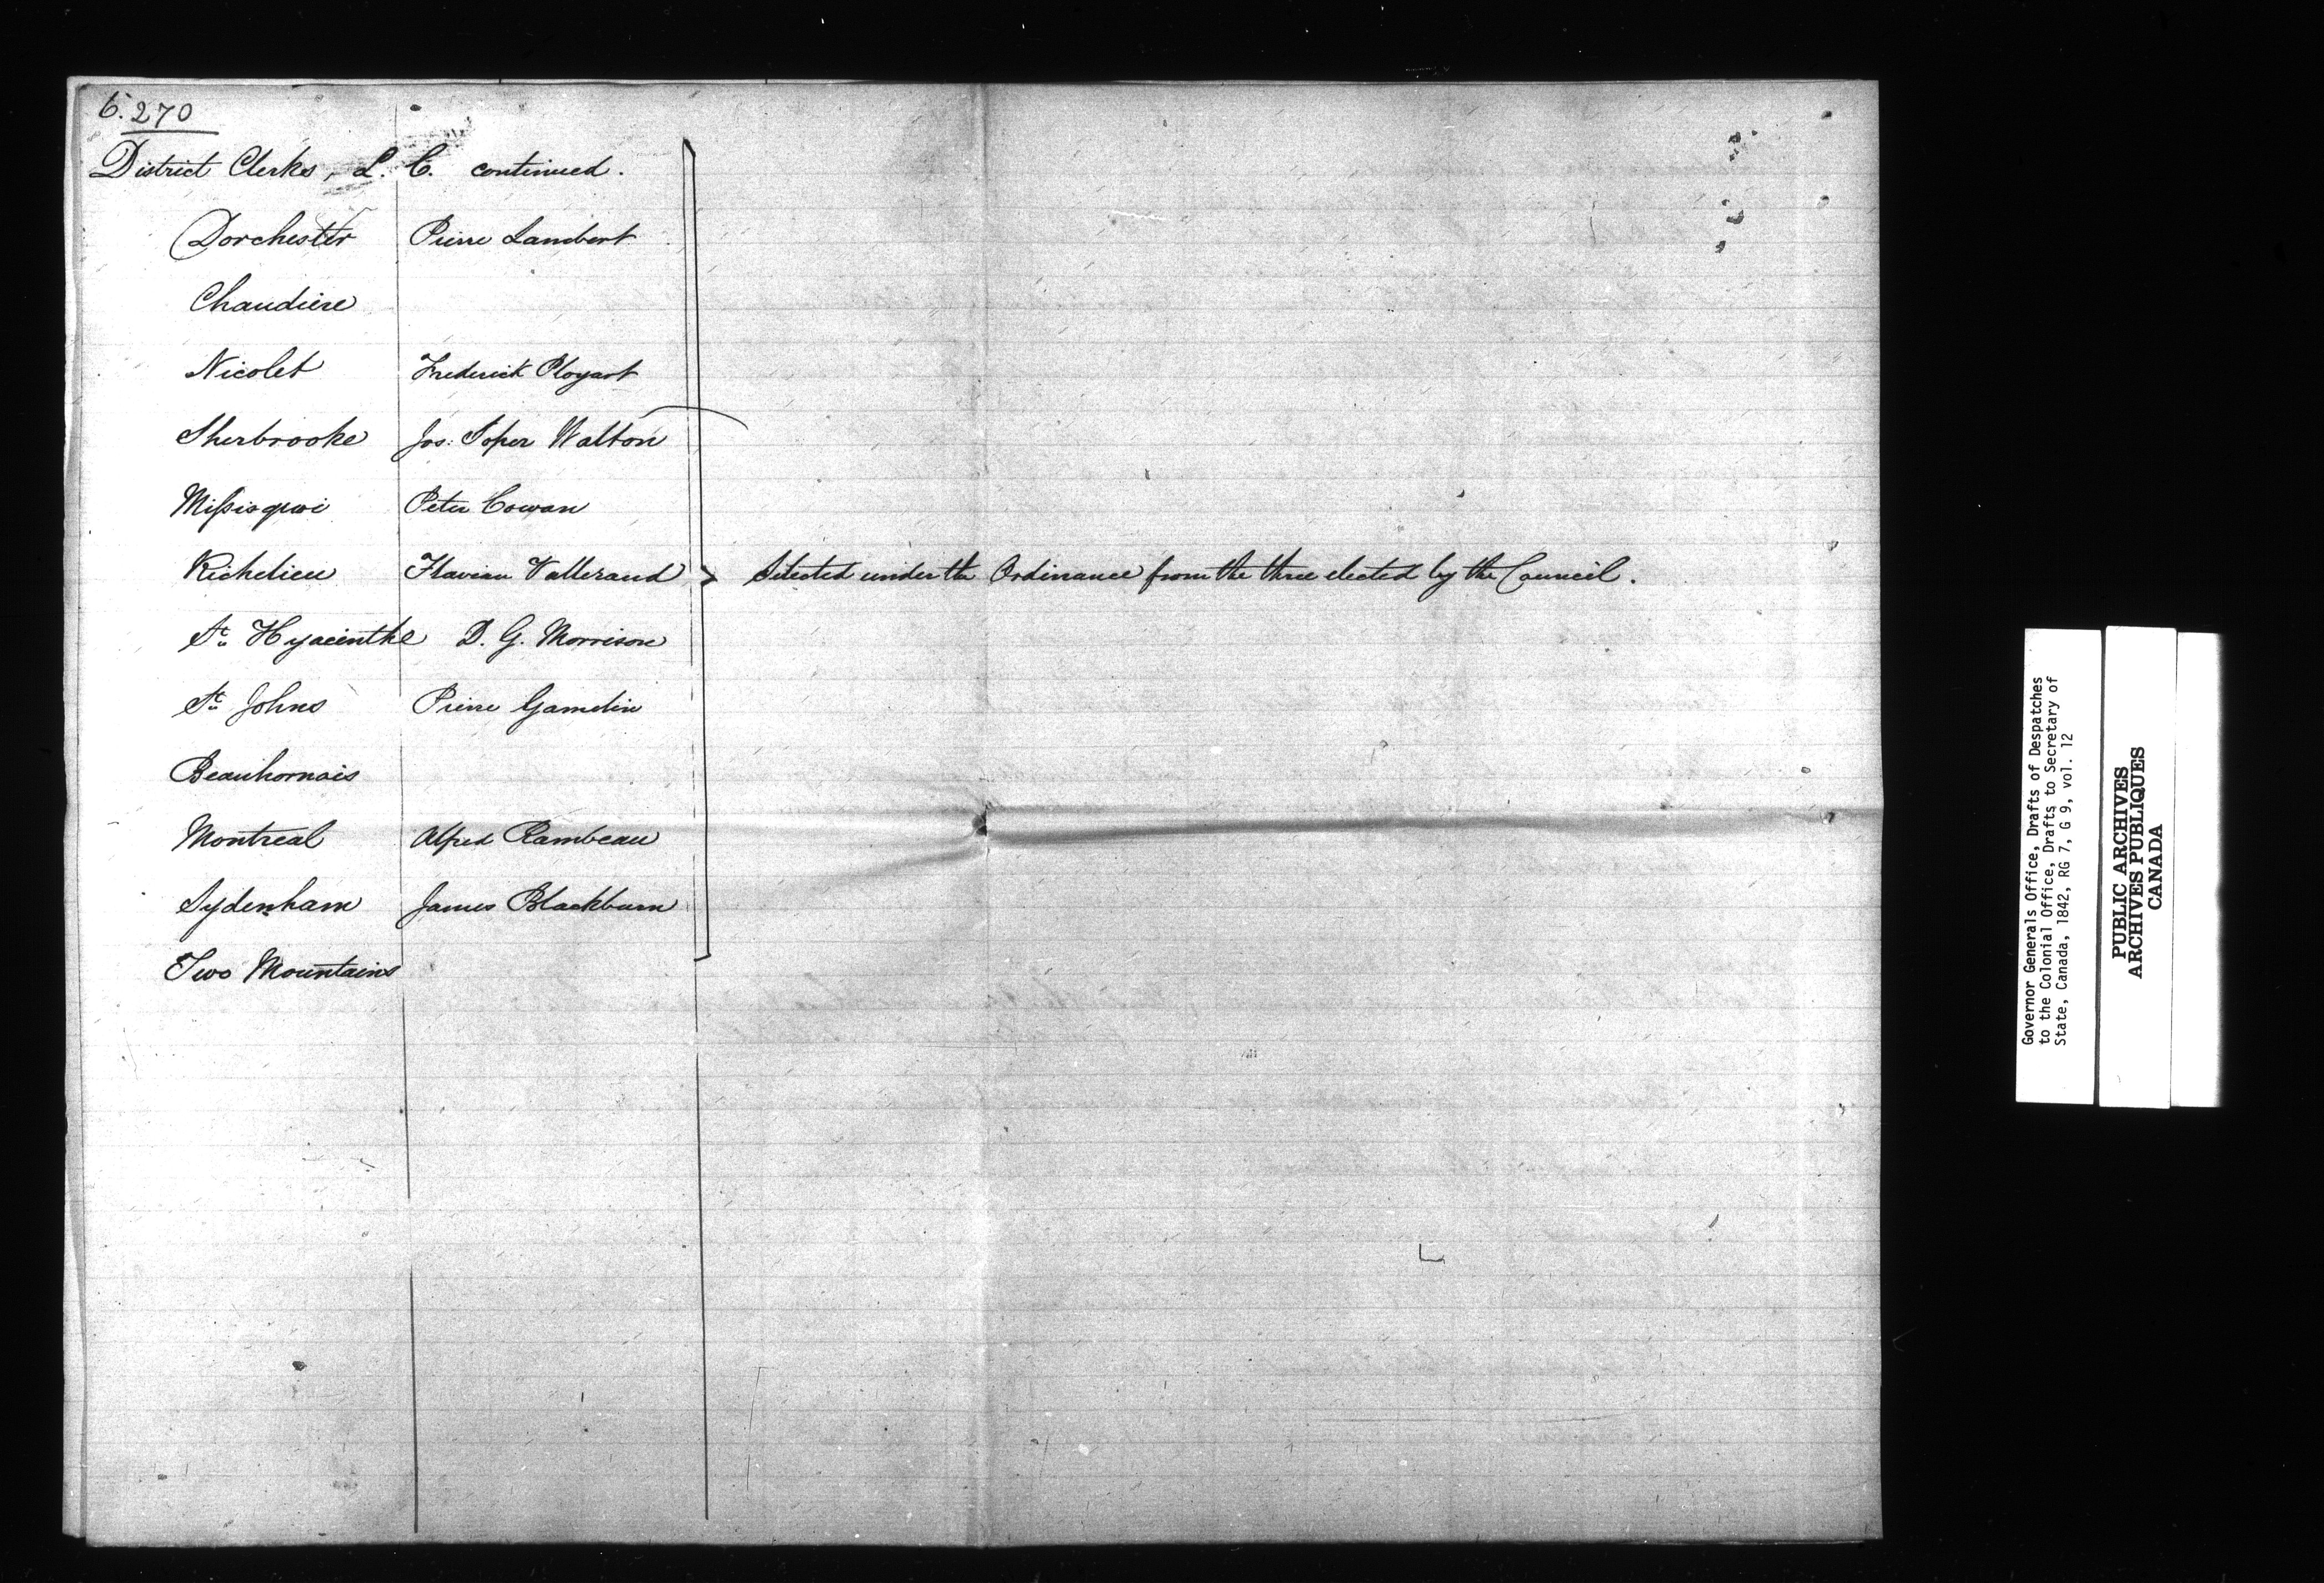 6. 270
District Clerks, L. C. continued.
Dorchester Pierre Lambert
Chaudière
Nicolet Frederick Ployart
Sherbrooke Jos: Soper Walton
Missisquoi Peter Cowan
Richelieu Flavian Vallerand Selected under the Ordinance from the three elected by the Council.
St. Hyacinthe D. G. Morrison
St. Johns Pierre Gamelin
Beauharnais
Montreal Alfred Rambeau
Sydenham James Blackburn
Two Mountains
Governor Generals Office, Drafts of Despatches
to the Colonial Office, Drafts to Secretary of
State, Canada, 1842, RG 7, G 9, vol. 12
PUBLIC ARCHIVES
ARCHIVES PUBLIQUES
CANADA